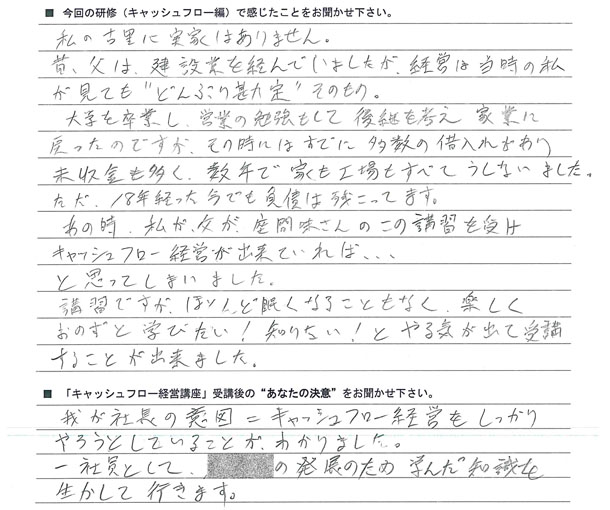 ■ 今回の研修（キャッシュフロー編）で感じたことをお聞かせ下さい。
私の古里に実家はありません。
昔、父は、建設業を経んでいましたが、経営は当時の私
が見ても"どんぶり勘定"そのもの。
大学を卒業し、営業の勉強もして後継を考え家業に
戻ったのですが、その時にはすでに多数の借入れがあり
未収金も多く、数年で家も工場もすべてうしないました。
ただ、18年経った今でも負債は残こってます。
あの時、私が、父が、座間味さんのこの講習を受け
キャッシュフロー経営が出来ていれば、、、
と思ってしまいました。
講習ですが、ほとんど眠くなることもなく、楽しく
おのずと学びたい！知りたい！とやる気が出て受講
することが出来ました。
■ 「キャッシュフロー経営講座」受講後の"あなたの決意"をお聞かせ下さい。
我が社長の意図＝キャッシュフロー経営をしっかり
やろうとしていることが、わかりました。
一社員として、の発展のため学んだ知識を
生かして行きます。